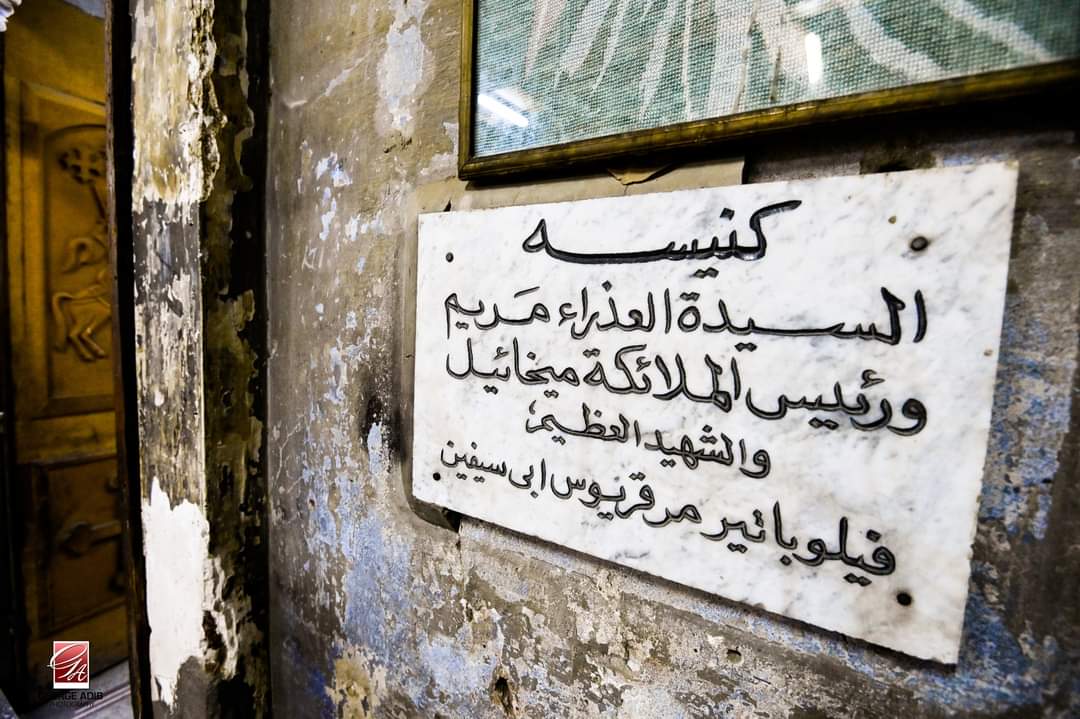 كنيسه
السيدة العذراء مَريم
ورئيس الملائكة ميخائيل
والشهيد العظيم،
فيلوباتير مرقريوس ابى سيفين
GA
GEORGE ADIB
PHOTOGRAPHY